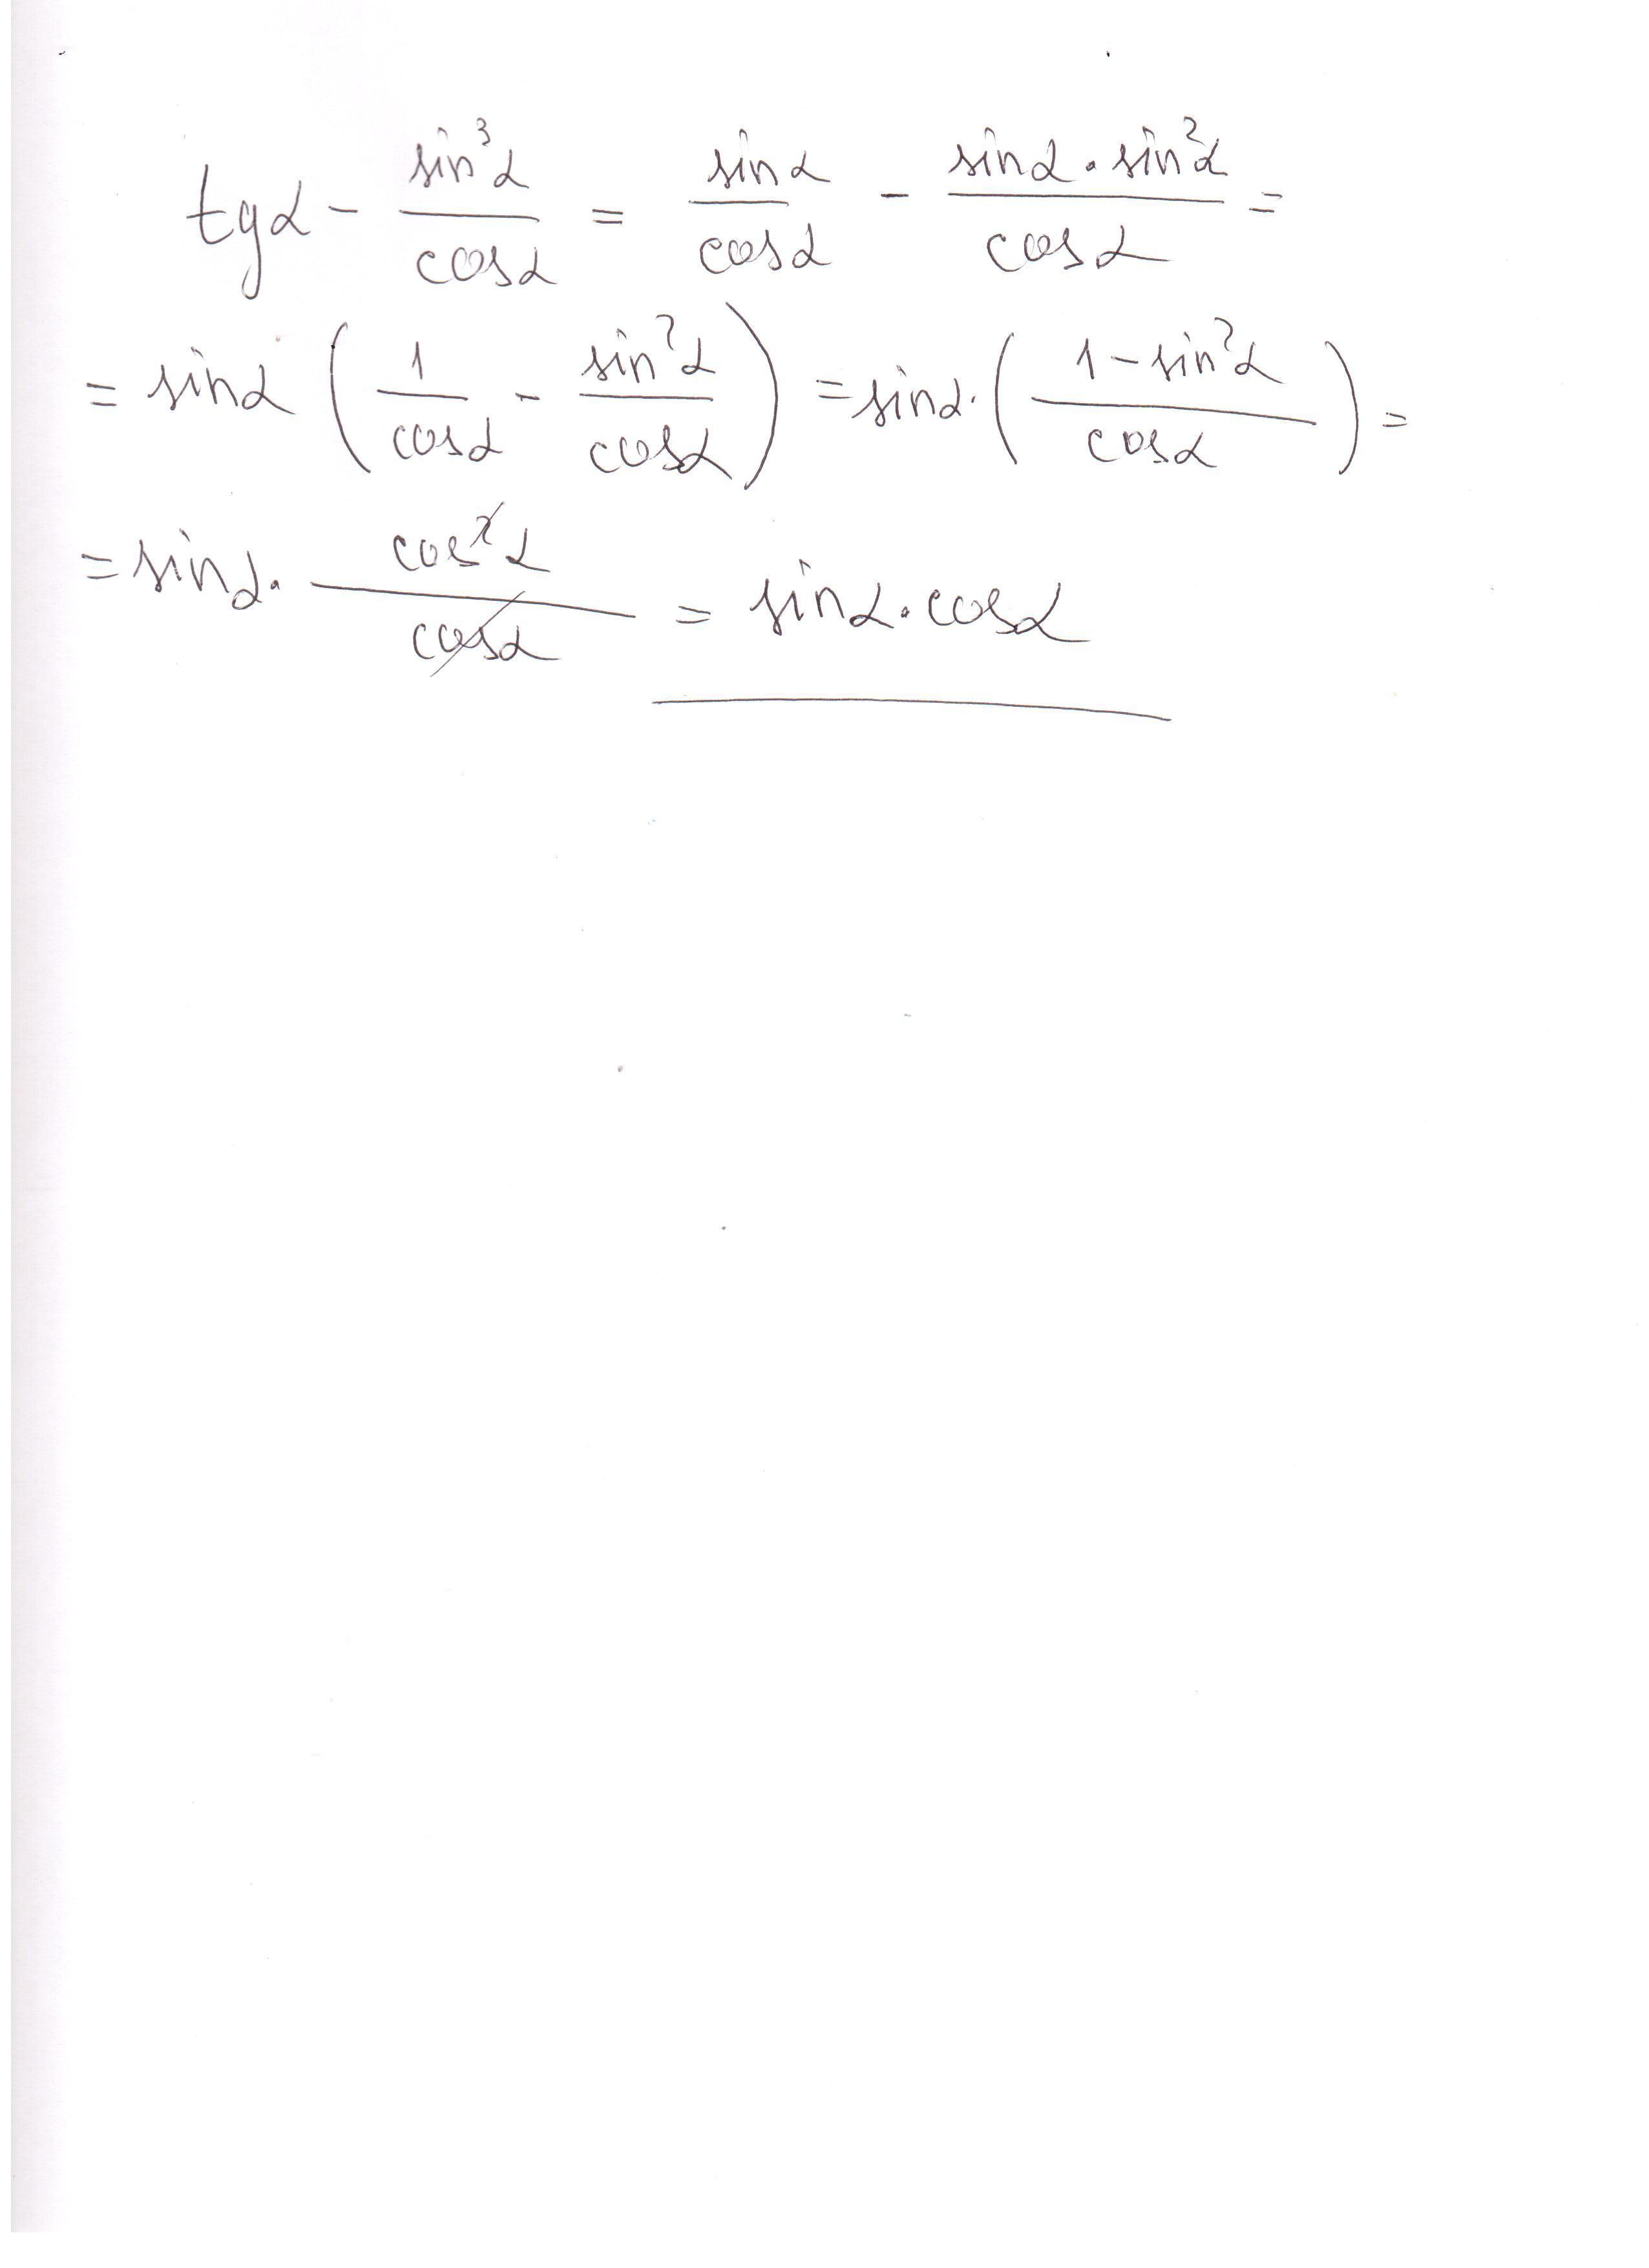 tgα - sin³α/cosα = sinα/cosα - sinα · sin²α/cosα =
= sinα (1/cosα - sin²α/cosα) = sinα · (1 - sin²α/cosα) =
= sinα · cos²α/cosα = sinα · cosα